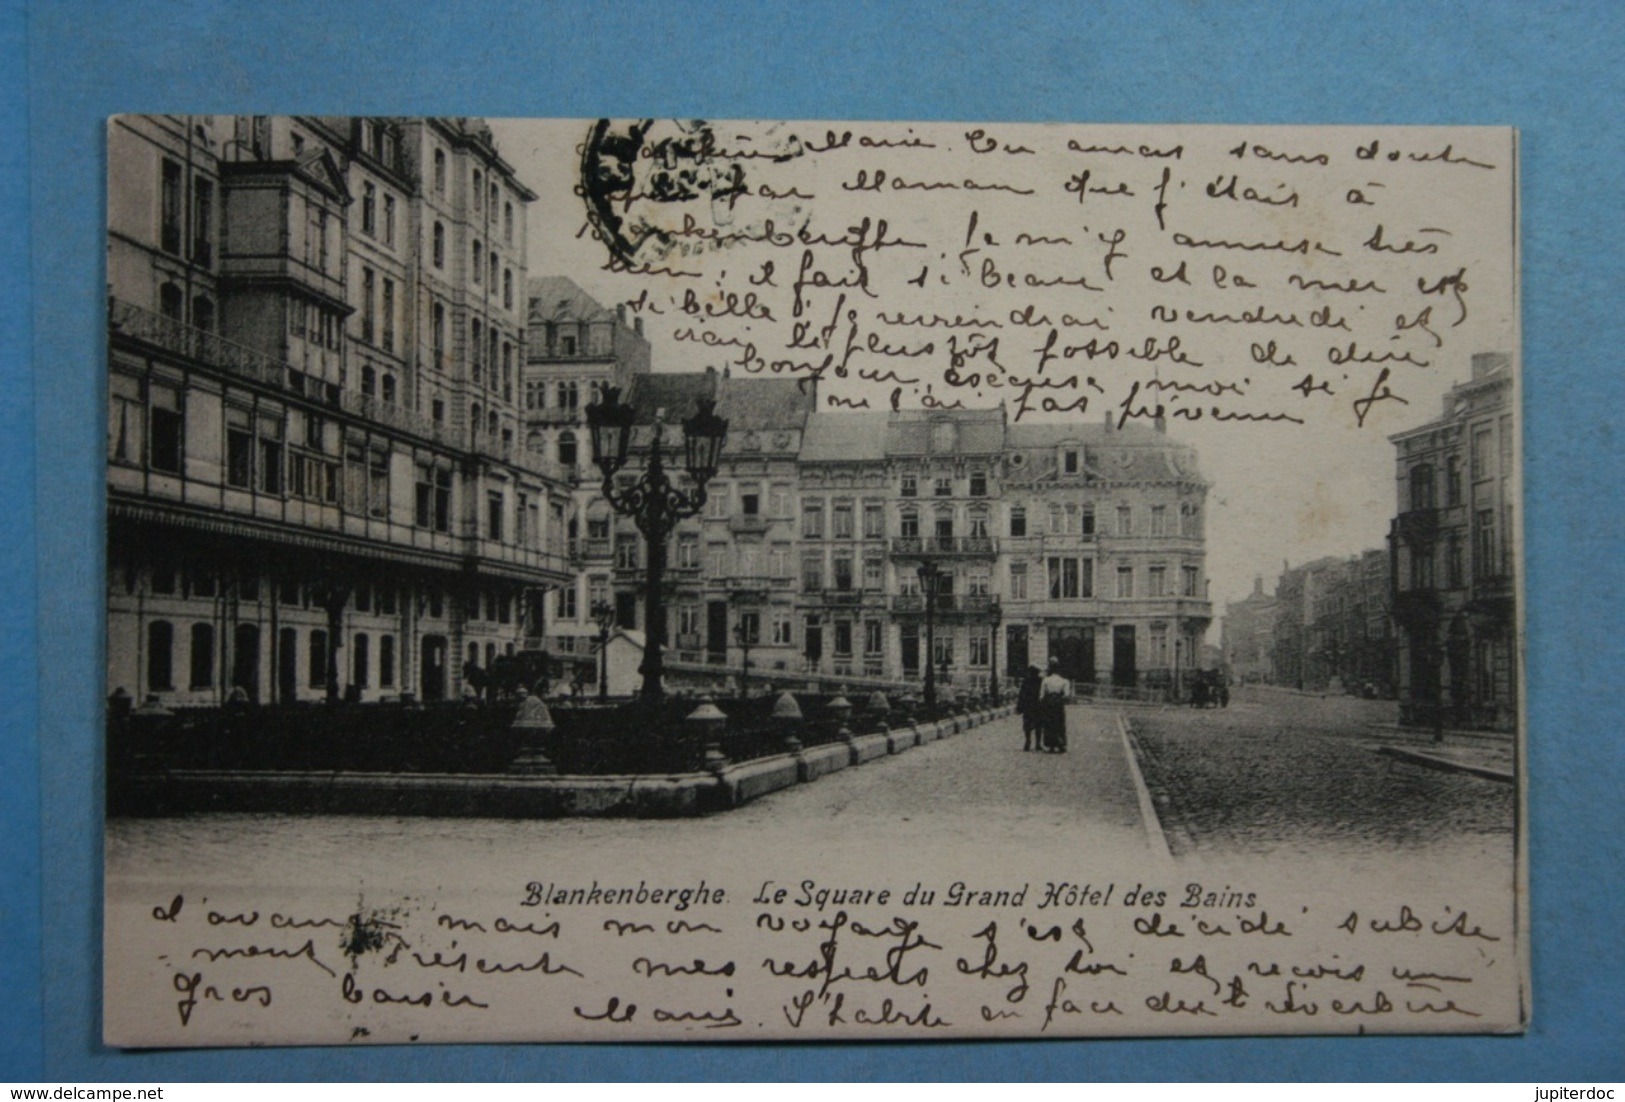 Marie. Tu auras sans doute
par Maman que j'étais à
Blankenberghe, Je m'y amuse très
bien; il fait si beau et la mer est
si belle! Je reviendrai vendredi et
irai le plus tôt possible te dire
bonjour, excuse moi si je
ne t'ai pas prévenu
Blankenberghe. Le Square du Grand Hôtel des Bains
d'avance mais mon voyage s'est décidé subite
ment. Présente mes respects chez toi et reçois un
gros baiser Marie. J'habite en face du réverbère
jupiterdoc